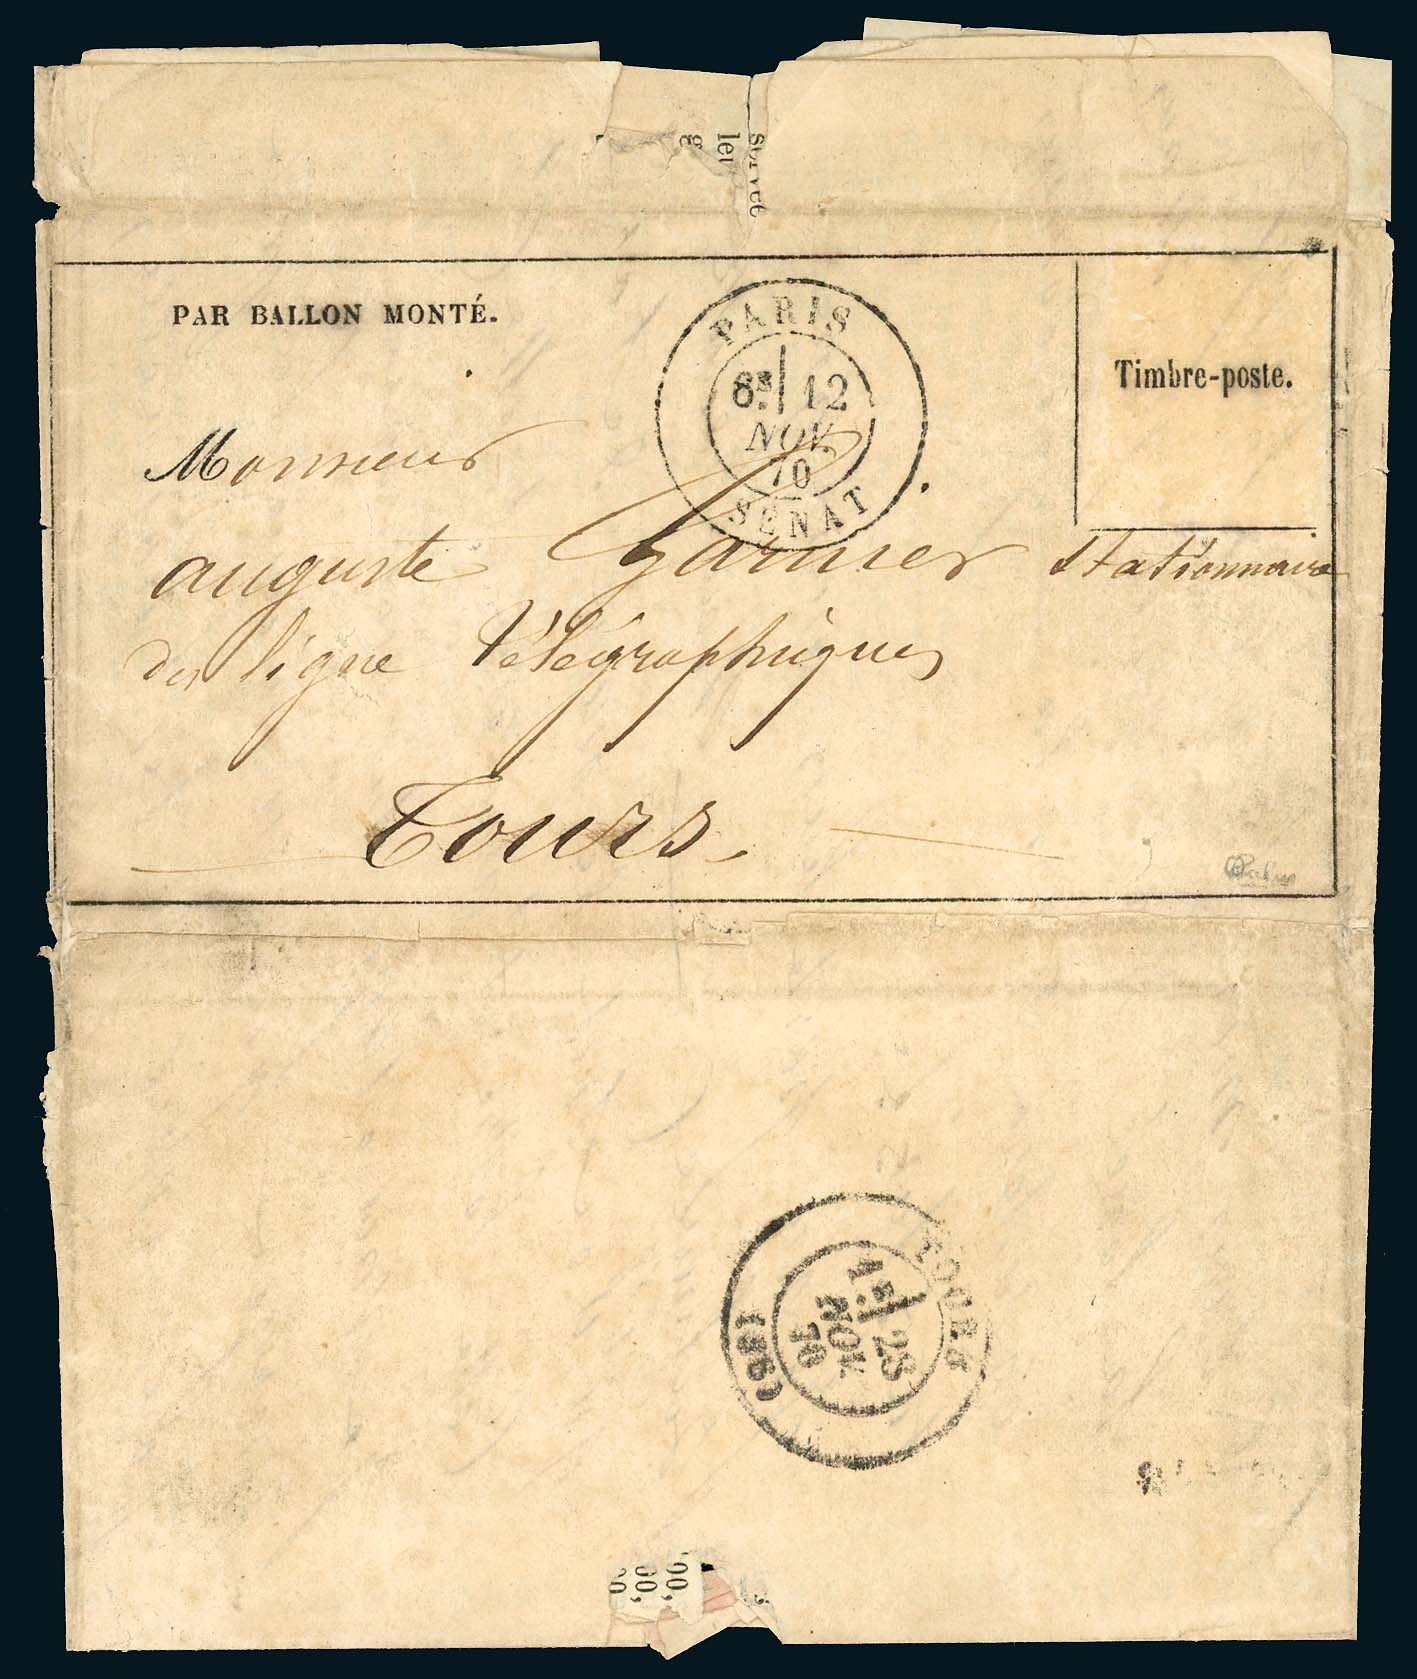 PAR BALLON MONTÉ.
PARIS
6E 12
NOV.
70
SÉNAT
Timbre-poste.
Monsieur
auguste Garnier stationnaire
des ligne Télégraphiques
Tours
TOURS
4E 28
NOV.
70